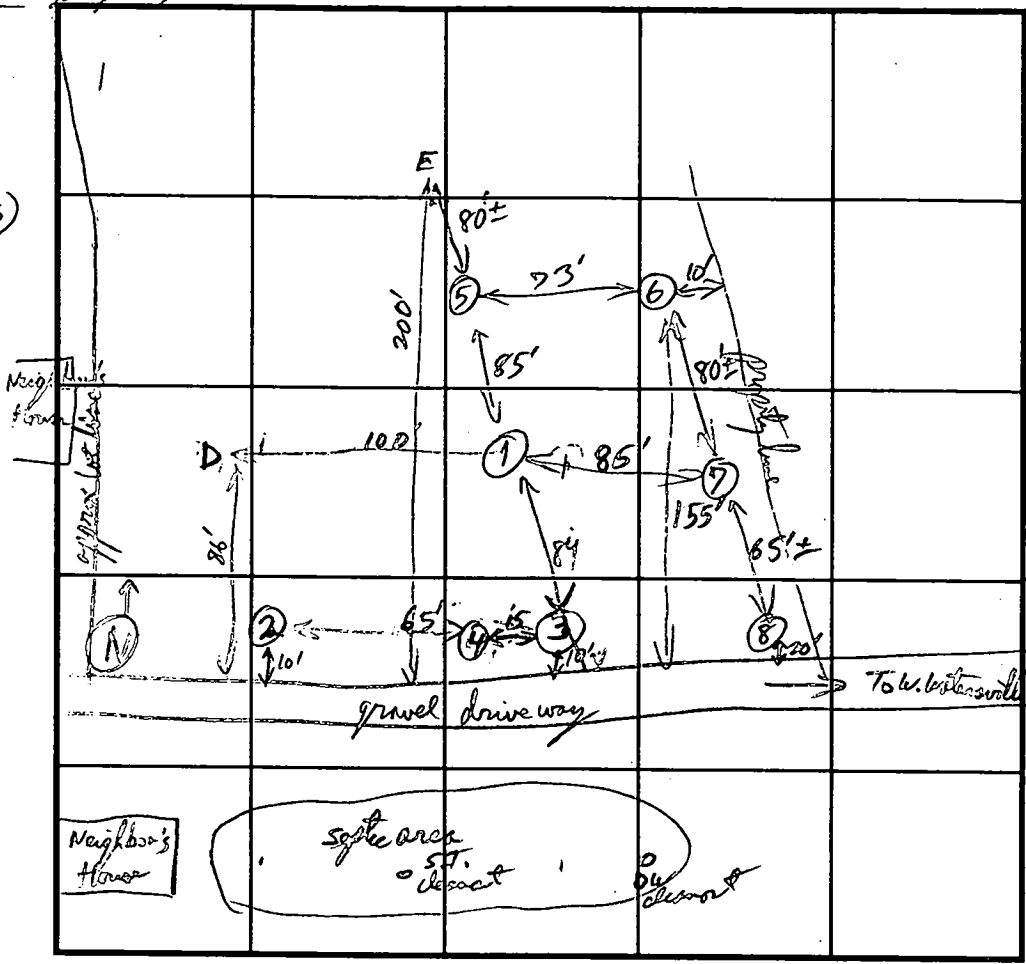 E
80'±
5
73'
6
10'
200'
85'
80'±
Property line
Neighbor's
House
approx lot line
D
100'
1
85'
7
155'
86'
84'
65'±
N
2
65'
4
15
3
8
10'
10'
20'
gravel driveway
To W.
Neighbor's
House
septic area
S.T.
cleanout
cleanout